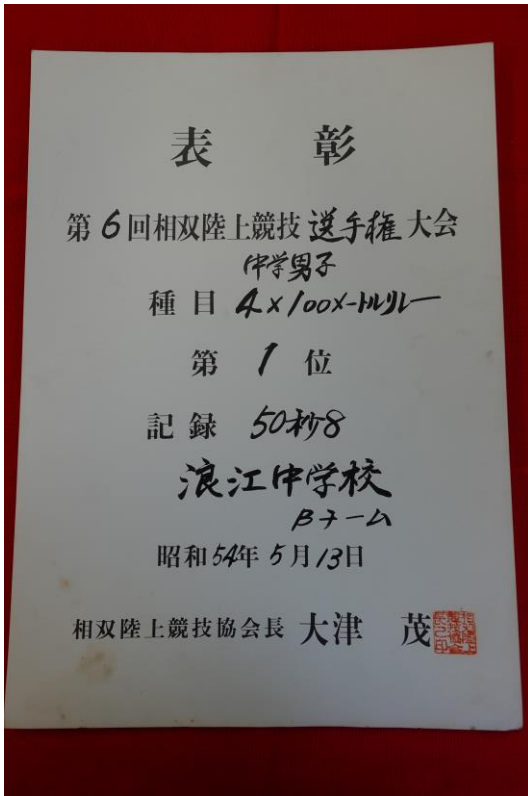 表彰
第6回相双陸上競技選手権大会
中学男子
種目 4×100メートルリレー
第1位
記録 50秒8
浪江中学校
Bチーム
昭和54年5月13日
相双陸上競技協会長 大津 茂